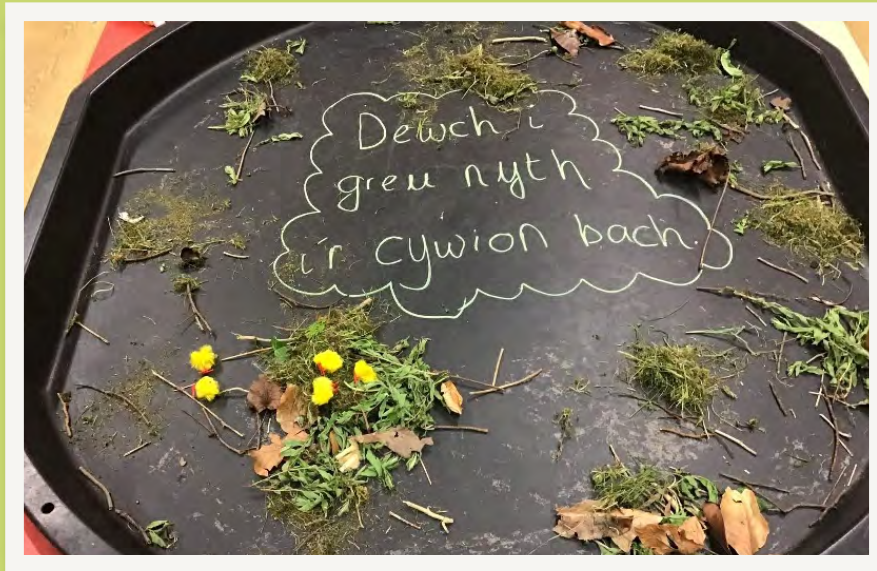 Dewch i
greu nyth
i'r cywion bach.